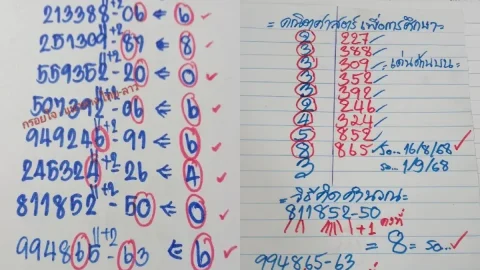 213388+2-06 ⇐ 6 ✓
251309+2-89 ⇐ 8 ✓
559352+2-20 ⇐ 0 ✓
507392+2-06 ⇐ 6 ✓
949246+2-91 ⇐ 6 ✓
245324+2-26 ⇐ 4 ✓
811852+2-50 ⇐ 0 ✓
994865+2-63 ⇐ 6 ✓
= คณิตศาสตร์ เพื่อการศึกษา =
227
3 388
3 309 =เด่นด้านบน=
3 352
3 392
246
4 324
5 852
865 ✓ รอ... 16/8/68 ✓
3 รอ... 1/9/68
= วิธีคิดคำนวณ =
811852-50
+1 คงที่
= 8 = รอ... ✓
994865-63